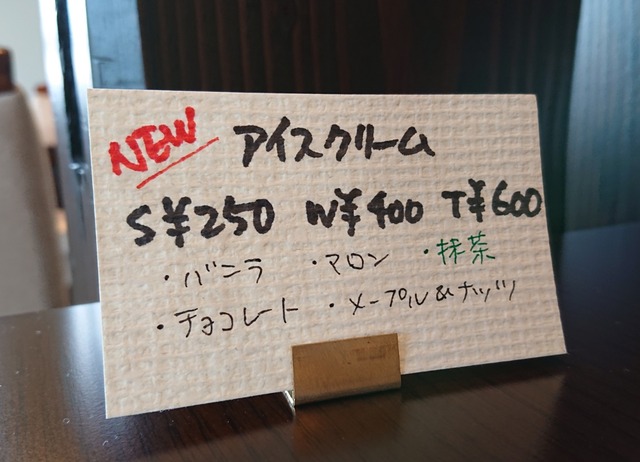 NEW アイスクリーム
S¥250 W¥400 T¥600
・バニラ ・マロン ・抹茶
・チョコレート ・メープル&ナッツ